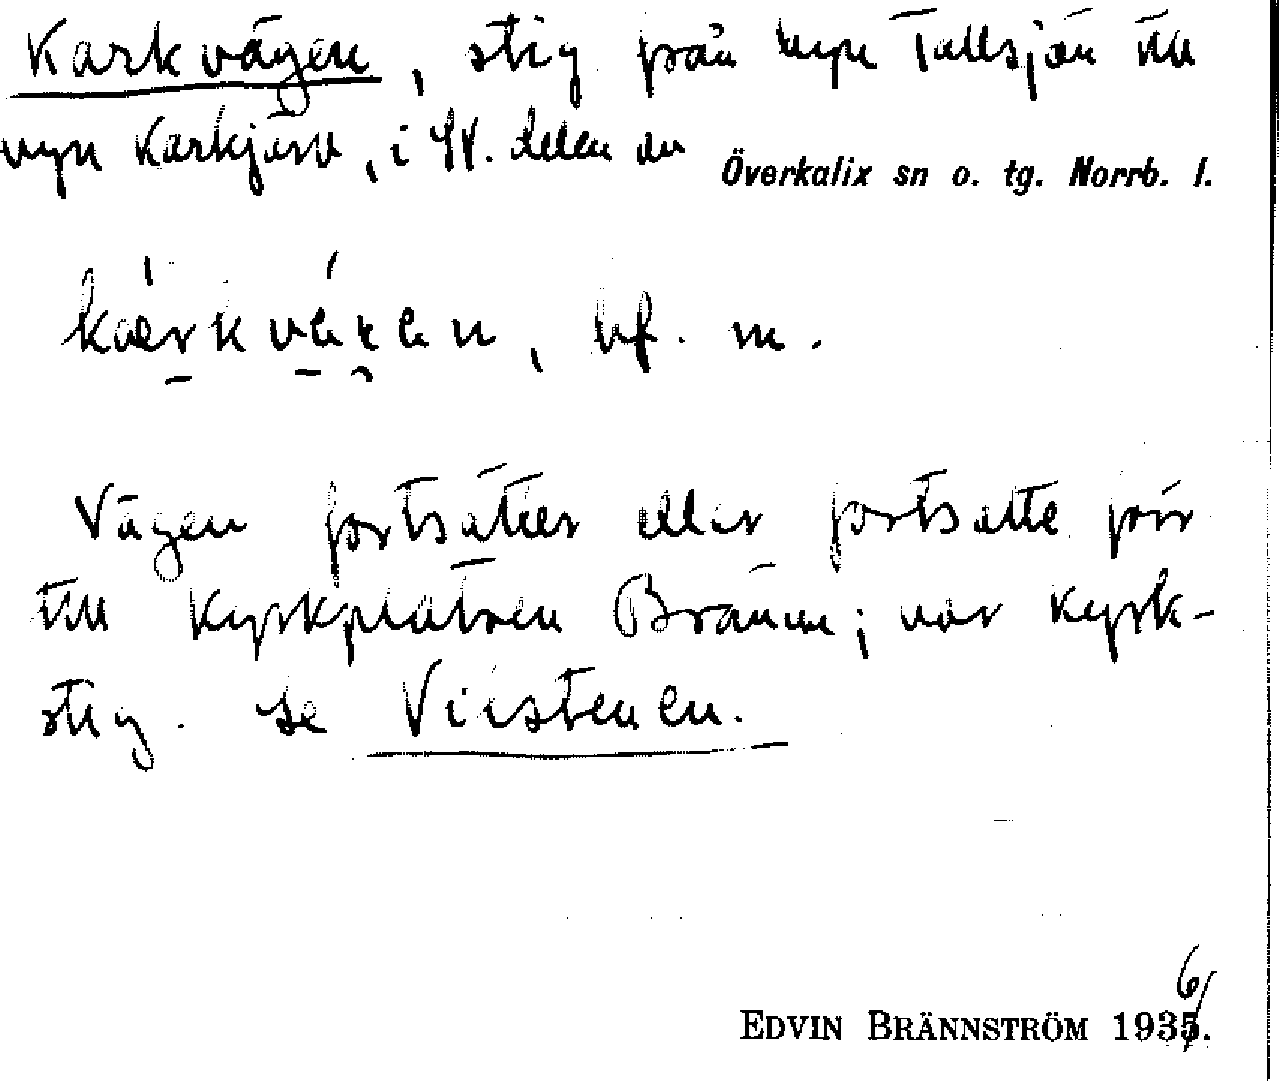 Karkvägen, stig från byn Tallsjön till
byn Karkjärv, i SV. delen av Överkalix sn o. tg. Norrb. l.
kàrkvä́gen, bf. m.
Vägen fortsätter eller fortsatte förr
till kyrkplatsen Brännan; var kyrk-
stig. Se Viistenen.
6/
EDVIN BRÄNNSTRÖM 1935.